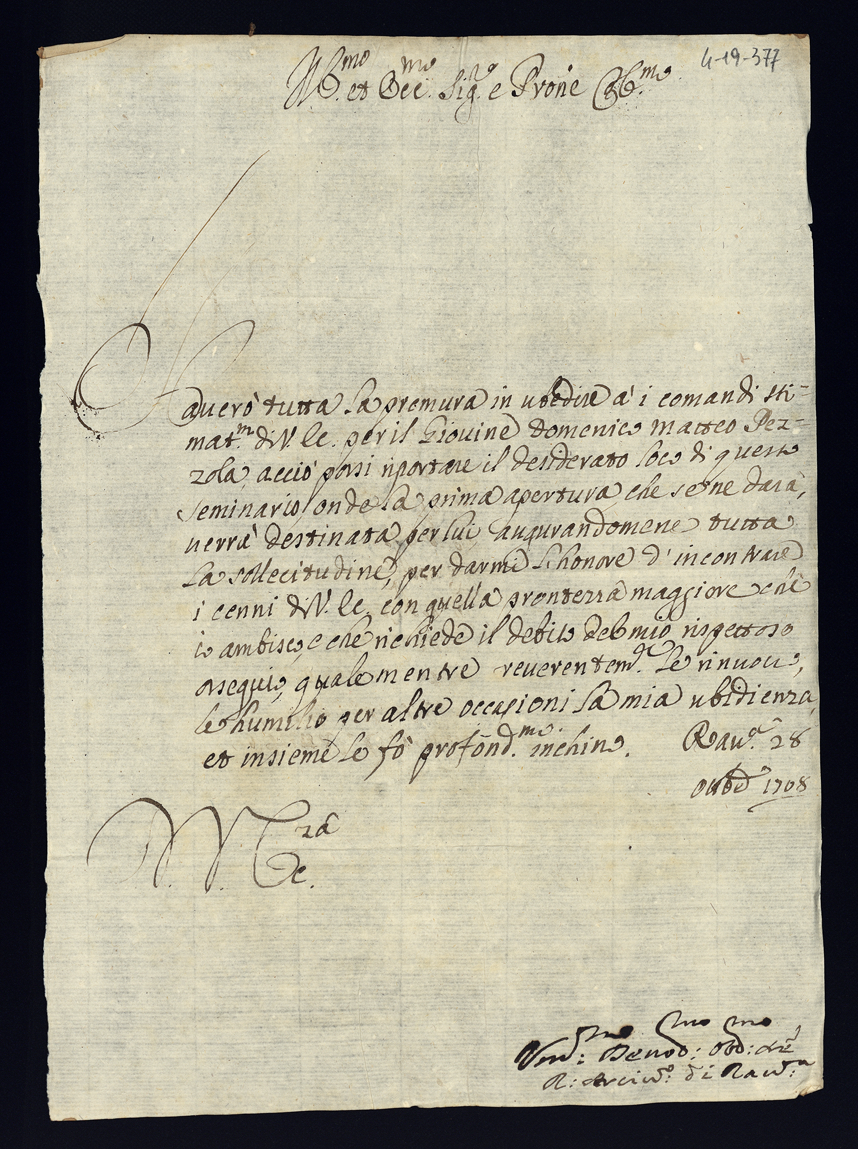 4-19-377
Ill.mo et Ecc.mo Sig.re e Prone Col.mo
Haverò tutta la premura in ubedire à i comandi sti=
mat.mi di V. Ec. per il Giovine Domenico Matteo Pez=
zola, acciò possi riportare il desiderato loco di questo
seminario, onde la prima apertura che se ne darà,
verrà destinata per lui, augurandomene tutta
la sollecitudine, per darmi l'honore d'incontrare
i cenni di V. Ec. con quella prontezza maggiore che
io ambisco, e che richiede il debito del mio rispettoso
ossequio, quale mentre reverentem.te le rinuovo,
le humilio per altre occasioni la mia ubidienza,
et insieme le fò profond.me inchino. Rav.a 28
Ottob.e 1708
V. Ecc.za
Um.mo Devod:mo Obb:mo
R: Arciv.o di Rav:a